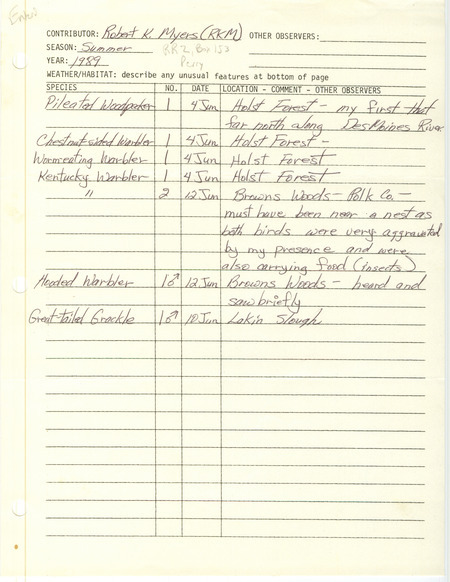 Enter
CONTRIBUTOR: Robert K. Myers (RKM) OTHER OBSERVERS:
SEASON: Summer RR2, Box 153
YEAR: 1989 Perry
WEATHER/HABITAT: describe any unusual features at bottom of page
SPECIES NO. DATE LOCATION - COMMENT - OTHER OBSERVERS
Pileated Woodpecker 1 4 Jun Holst Forest - my first that
far north along DesMoines River
Chestnut-sided Warbler 1 4 Jun Holst Forest -
Wormeating Warbler 1 4 Jun Holst Forest
Kentucky Warbler 1 4 Jun Holst Forest
" 2 12 Jun Browns Woods - Polk Co. -
must have been near a nest as
both birds were very aggravated
by my presence and were
also carrying food (insects)
Hooded Warbler 1♂ 12 Jun Browns Woods - heard and
saw briefly
Great-tailed Grackle 1♂ 10 Jun Lakin Slough